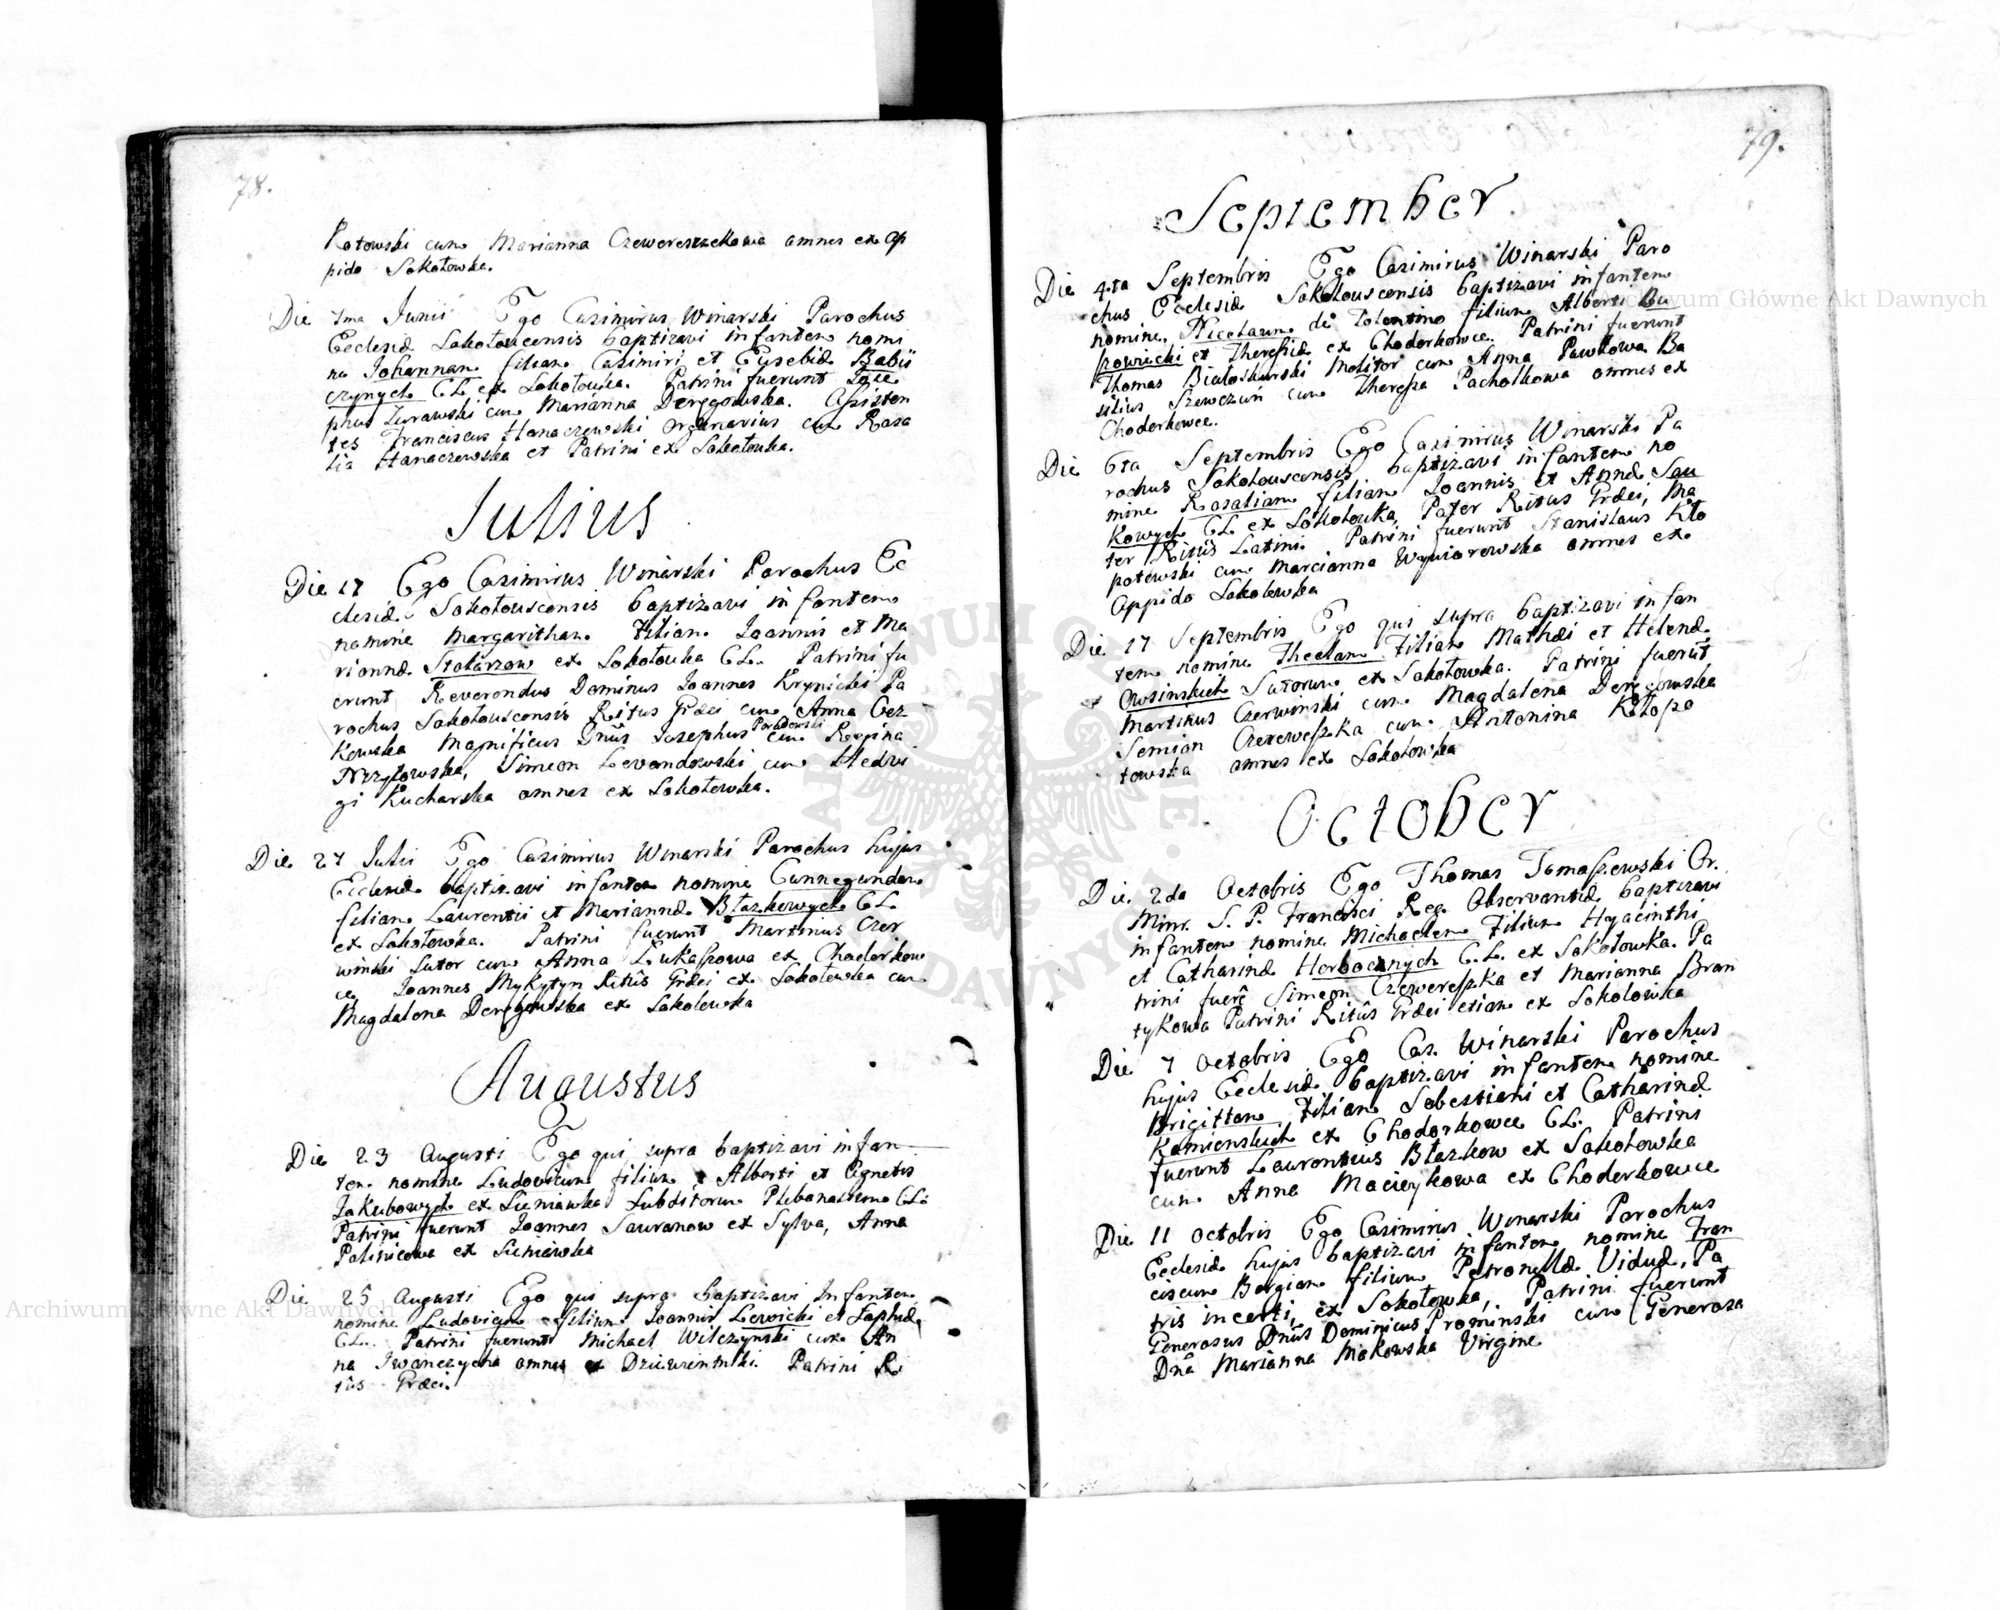 78.
Kotowski cum Marianna Czewereszczkowa omnes ex op
pido Sokołowka.
Die 7ma Junii Ego Casimirus Winarski Parochus
Ecclesiæ Sokołoucensis baptizavi infantem nomi
ne Johannam filiam Casimiri et Eusebiæ Babii
czynych CL ex Sokołowka. Patrini fuerunt Iose
phus Zurawski cum Marianna Deręgowska. Assisten
tes Franciscus Hanaczewski organarius cum Rosa
lia Hanaczewska et Patrini ex Sokołowka.
Iulius
Die 17 Ego Casimirus Winarski Parochus Ec
clesiæ Sokołouscensis baptizavi infantem
nomine Margaritham Filiam Ioannis et Ma
riannæ Stolarzow ex Sokołouka CL. Patrini fu
erunt Reverendus Dominus Ioannes Krynicki Pa
rochus Sokołouscensis Ritus Græci cum Anna
Kowska Magnificus Dnūs Iosephus cum Regina
Simeon Levandowski cum Hedvi
gi Kucharska omnes ex Sokołowka.
Die 27 Iulii Ego Casimirus Winarski Parochus hujus
Ecclesiæ baptizavi infantem nomine Cunnegundam
filiam Laurentii et Mariannæ Błazkowych CL
ex Sokołowka. Patrini fuerunt Martinus Czer
winski Sutor cum Anna Łukaszowa ex Chodorkow
ce, Ioannes Mykytyn Ritûs Græci ex Sokołowka cum
Magdalena Deręgowska ex Sokolowka
Augustus
Die 23 Augusti Ego qui supra baptizavi infan
tem nomine Ludovicum filium Alberti et Agnetis
Jakubowych ex Sieniawka Subditorum Plebanalium CL.
Patrini fuerunt Ioannes Sauranow ex Sylva, Anna
Palinicowa ex Sieniawka
Die 25 Augusti Ego qui supra baptizavi Infantem
nomine Ludovicum filium Ioannis Lewicki et
CL. Patrini fuerunt Michael Wilczynski cum An
na Iwanczycha omnes ex Patrini Ri
tûs Græci.
79.
September
Die 4ta Septembris Ego Casimirus Winarski Paro
chus Ecclesiæ Sokołouscensis baptizavi infantem
nomine Nicolaum de Tolentino filium Alberti Bu
szownicki et Theressiæ ex Chodorkowce. Patrini fuerunt
Thomas Białoskurski Molitor cum Anna Pawłowa Ba
silius Szewczuń cum Theressa Pachołkowa omnes ex
Chodorkowce.
Die 6ta Septembris Ego Casimirus Winarski Pa
rochus Sokołouscensis baptizavi infantem no
mine Rosaliam filiam Ioannis et Annæ Sau
kowych CL ex Sokołouka, Pater Ritus Græci, Ma
ter Ritûs Latini. Patrini fuerunt Stanislaus Kło
potowski cum Marcianna Wyniorowska omnes ex
Oppido Sokolewka
Die 17 Septembris Ego qui supra baptizavi infan
tem nomine Theclam Filiam Mathæi et Helenæ
Owsinskich Sutorum ex Sokołowka. Patrini fuerūt
Martinus Czerwinski cum Magdalena Deręgowska
Semian Czereweszka cum Antonina Kłopo
towska omnes ex Sokołowka
October
Die 2da Octobris Ego Thomas Tomaszewski Or.
Minr. S. P. Francisci Reg. Observantiæ baptizavi
infantem nomine Michaelem Filium Hyacinthi
et Catharinæ Horbocznych C.L. ex Sokołowka. Pa
trini fuerē Simeon Czewereszka et Marianna Bran
tykowa Patrini Ritûs Græci etiam ex Sokołowka
Die 7 Octobris Ego Cas. Winarski Parochus
hujus Ecclesiæ baptizavi infantem nomine
Brigittam Filiam Sebestiani et Catharinæ
Kamienskich ex Chodorkowce CL. Patrini
fuerunt Laurentius Błazkow ex Sokołowka
cum Anna Macieykowa ex Chodorkowce
Die 11 Octobris Ego Casimirus Winarski Parochus
Ecclesiæ hujus baptizavi infantem nomine Fran
ciscum Borgiam filium Petronellæ Viduæ, Pa
tris incerti, ex Sokołowka, Patrini fuerunt
Generosus Dnūs Dominicus Prominski cum Generosa
Dnā Marianna Makowska Virgine
Archiwum Główne Akt Dawnych
Archiwum Główne Akt Dawnych